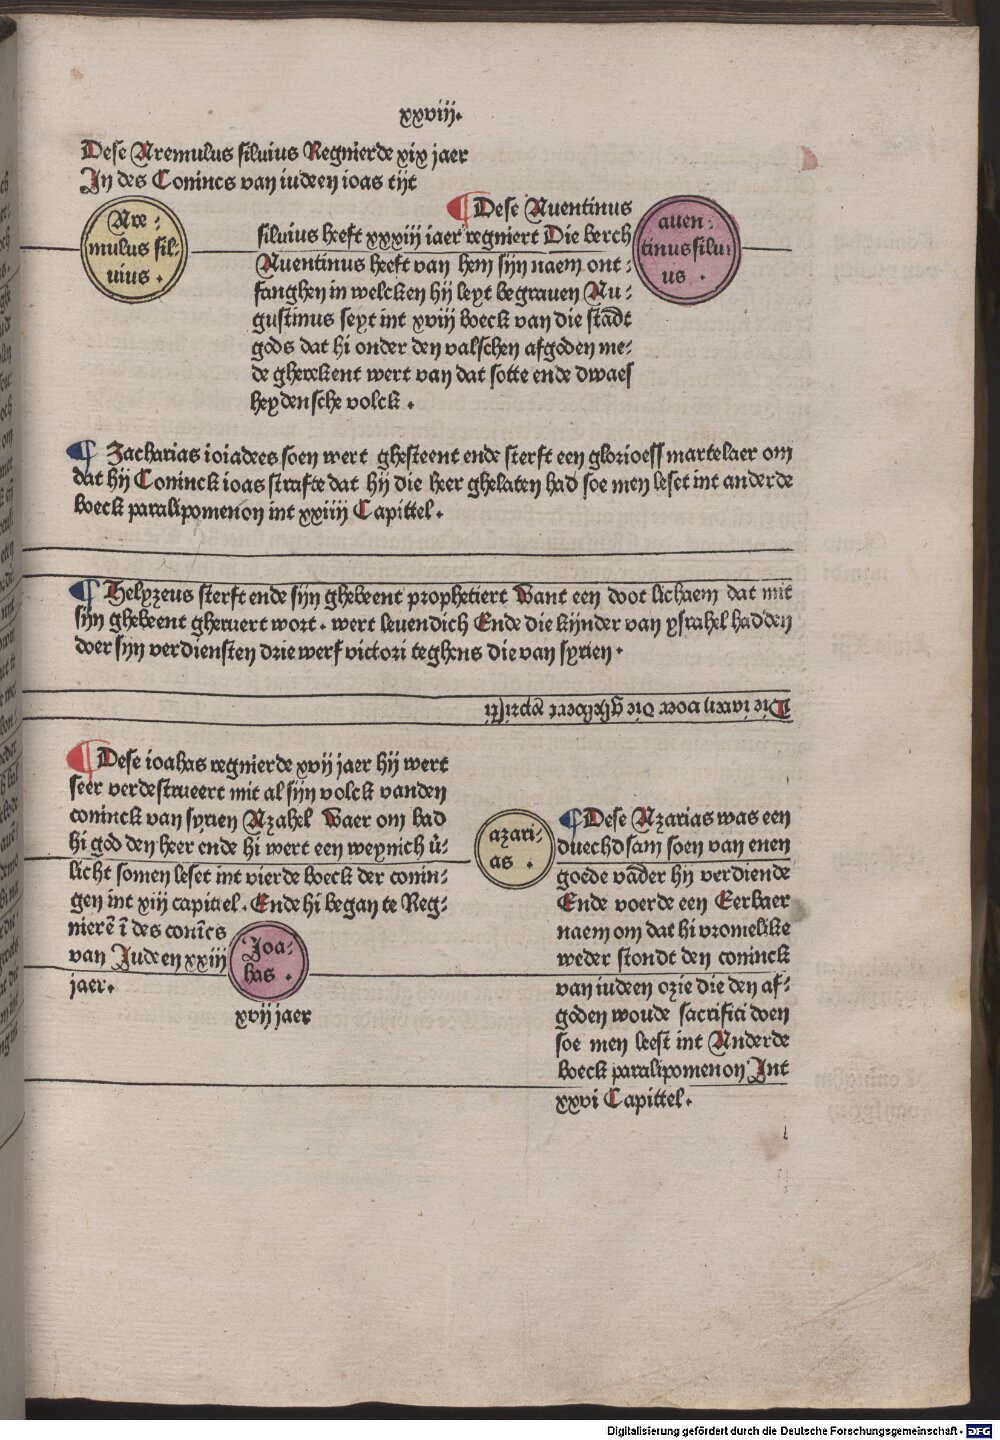 xxviij.
Dese Aremulus siluius Regnierde xix jaer
In des Conincs van iudeen ioas tijt
Are-
mulus sil-
uius .
¶ Dese Auentinus
siluius heeft xxxvij iaer regniert Die berch
Auentinus heeft van hem sijn naem ont-
fanghen in welcken hij leyt begrauen Au-
gustinus seyt int xviij boeck van die stadt
gods dat hi onder den valschen afgoden me-
de gherekent wert van dat sotte ende dwaes
heydensche volck .
auen-
tinus silui
us .
¶ Zacharias ioiadees soen wert ghesteent ende sterft een glorioess martelaer om
dat hij Coninck ioas strafte dat hij die heer ghelaten had soe men leset int anderde
boeck paralipomenon int xxiiij Capittel .
¶ Helyzeus sterft ende sijn ghebeent prophetiert Want een doot lichaem dat mit
sijn ghebeent gheruert wort . wert leuendich Ende die kijnder van ysrahel hadden
doer sijn verdiensten drie werf victori teghens die van syrien .
Die iaren voer die gheboert xpristi
¶ Dese ioahas regnierde xvij jaer hij wert
seer verdestrueert mit al sijn volck vanden
coninck van syrien Azahel Waer om bad
hi god den heer ende hi wert een weynich v̄-
licht somen leset int vierde boeck der conin-
gen int xiij capittel . Ende hi began te Reg-
nierē ī des conīcs
van Judeen xxiij
jaer .
Joa-
has .
xvij jaer
azari-
as .
¶ Dese Azarias was een
duechdsam soen van enen
goede vāder hij verdiende
Ende voerde een Eerbaer
naem om dat hi vromelike
weder stondt den coninck
van iudeen ozie die den af-
goden woude sacrifici doen
soe men leest int Anderde
boeck paralipomenon Int
xxvi Capittel .
Digitalisierung gefördert durch die Deutsche Forschungsgemeinschaft - DFG